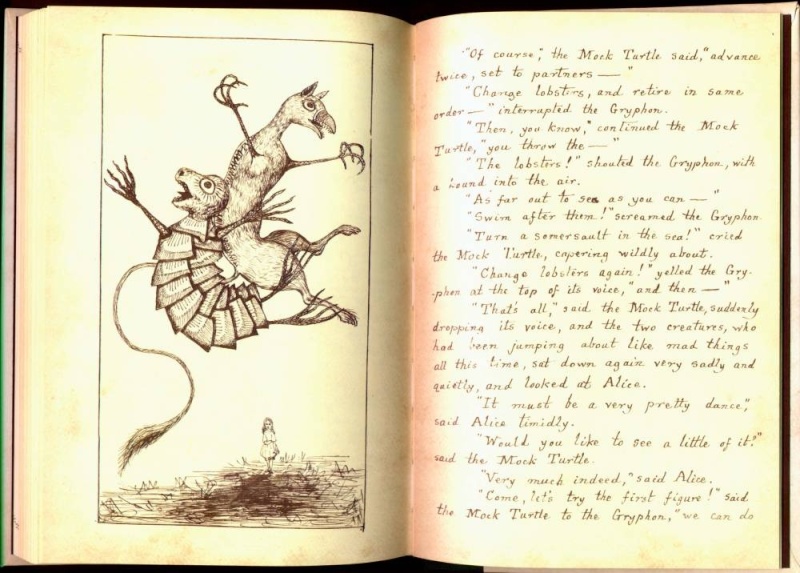 "Of course", the Mock Turtle said, "advance
twice, set to partners — "
"Change lobsters, and retire in same
order — " interrupted the Gryphon.
"Then, you know," continued the Mock
Turtle, "you throw the — "
"The lobsters!" shouted the Gryphon, with
a bound into the air.
"As far out to sea as you can — "
"Swim after them!" screamed the Gryphon.
"Turn a somersault in the sea!" cried
the Mock Turtle, capering wildly about.
"Change lobsters again!" yelled the Gry-
-phon at the top of its voice, "and then — "
"That's all," said the Mock Turtle, suddenly
dropping its voice, and the two creatures, who
had been jumping about like mad things
all this time, sat down again very sadly and
quietly, and looked at Alice.
"It must be a very pretty dance,"
said Alice timidly.
"Would you like to see a little of it?"
said the Mock Turtle.
"Very much indeed," said Alice.
"Come, let's try the first figure!" said
the Mock Turtle to the Gryphon, "we can do